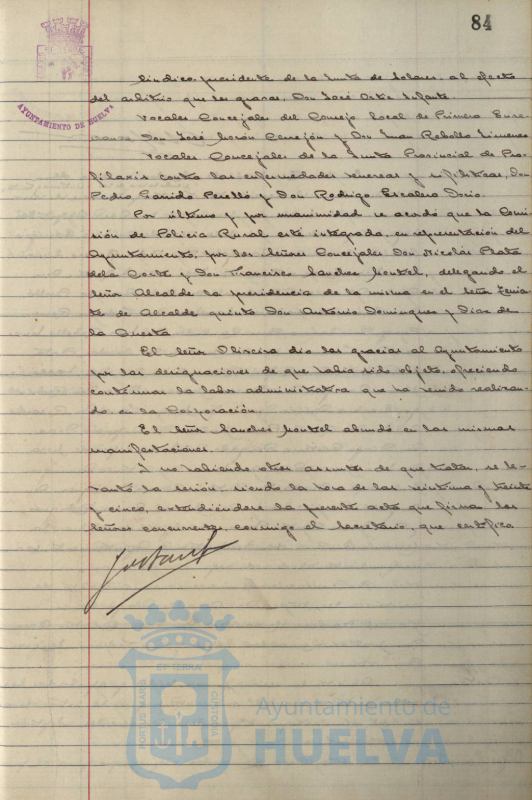 84
AYUNTAMIENTO DE HUELVA
Síndico, presidente de la Junta de Solares, al efecto
del arbitrio que los grava, Don José Ortiz Infante.
Vocales Concejales del Consejo local de Primera Ense-
ñanza Don José Morón Cerejón y Don Juan Rebollo Jimenez
Vocales Concejales de la Junta Provincial de Pro-
filaxis contra las enfermedades venereas y sifilíticas, Don
Pedro Garrido Perelló y Don Rodrigo Escalera Docio.
Por último y por unanimidad se acordó que la Comi-
sión de Policia Rural esté integrada, en representación del
Ayuntamiento, por los señores Concejales Don Nicolás Plata
de la Corte y Don Francisco Sanchez Montiel, delegando el
señor Alcalde la presidencia de la misma en el señor Tenien-
te de Alcalde quinto Don Antonio Dominguez y Diaz de
la Cuesta
El señor Oliveira dió las gracias al Ayuntamiento
por las designaciones de que habia sido objeto, ofreciendo
continuar la labor administrativa que ha venido realizan-
do, en la Corporación.
El señor Sanchez Montiel abundó en las mismas
manifestaciones.
Y no habiendo otros asuntos de que tratar, se le-
vantó la sesión, siendo la hora de las veintiuna y treinta
y cinco, extendiéndose la presente acta que firman los
señores concurrentes, conmigo el Secretario, que certifica
PORTUS MARIS
ET TERRAE
CUSTODIA
Ayuntamiento de
HUELVA